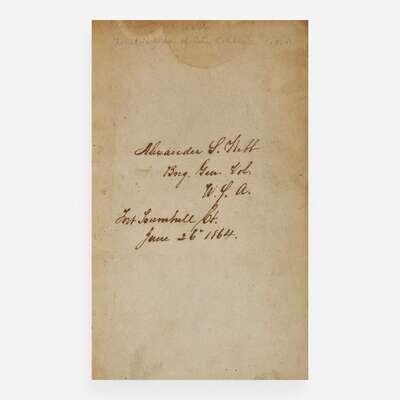 Alexander S. Webb
Brig. Gen. Vol.
U. S. A.
Fort Trumbull Ct.
June 26" 1864.